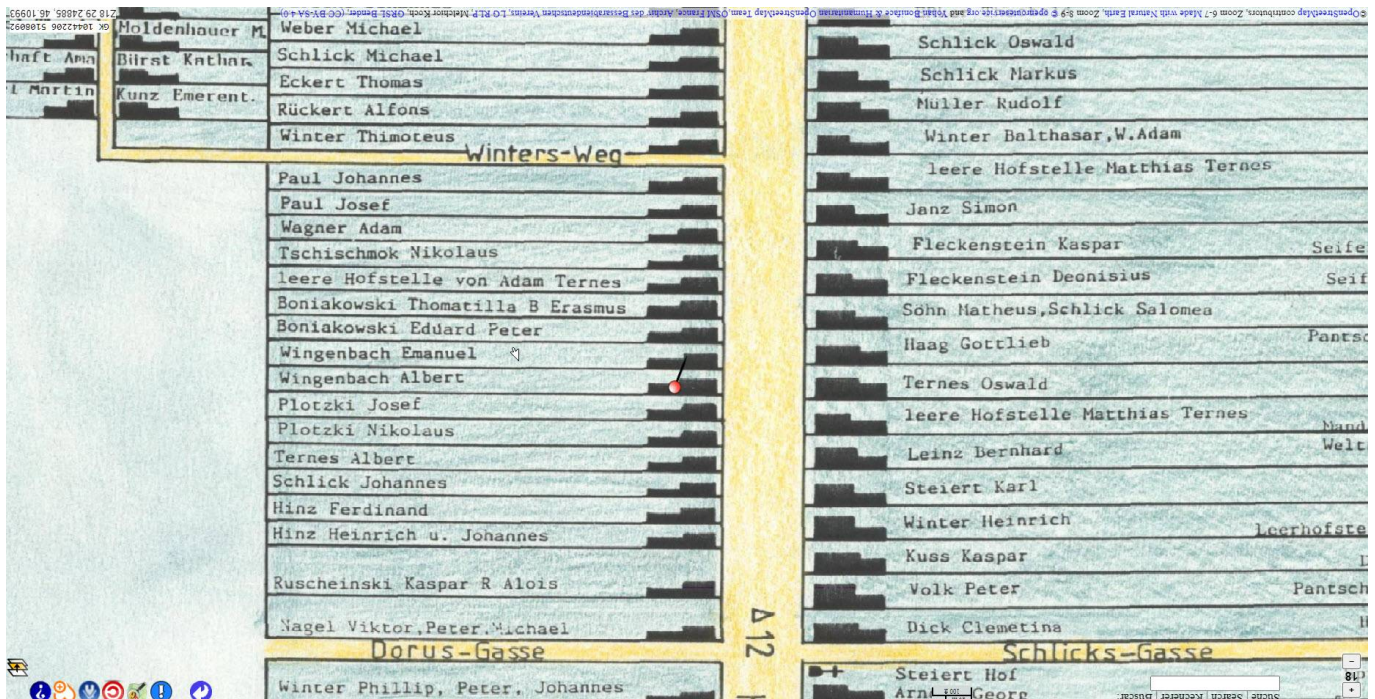 ©OpenStreetMap contributors, Zoom 6-7 Made with Natural Earth, Zoom 8-9 © openrouteservice.org and Yohan Boniface & Humanitarian OpenStreetMap Team, OSM France, Archiv des Bessarabiendeutschen Vereins, LO RLP Melchior Koch, GRSI Bender, (CC-BY-SA 4.0)
Z18 29.24885, 46.10993
Moldenhauer M.
haft Ama
Bürst Kathar.
l Martin
Kunz Emerent.
Weber Michael
Schlick Michael
Eckert Thomas
Rückert Alfons
Winter Thimoteus
Winters-Weg
Paul Johannes
Paul Josef
Wagner Adam
Tschischmok Nikolaus
leere Hofstelle von Adam Ternes
Boniakowski Thomatilla B Erasmus
Boniakowski Eduard Peter
Wingenbach Emanuel
Wingenbach Albert
Plotzki Josef
Plotzki Nikolaus
Ternes Albert
Schlick Johannes
Hinz Ferdinand
Hinz Heinrich u. Johannes
Ruscheinski Kaspar R Alois
Nagel Viktor,Peter.Michael
Dorus-Gasse
Winter Phillip, Peter, Johannes
A 12
Schlick Oswald
Schlick Markus
Müller Rudolf
Winter Balthasar,W.Adam
leere Hofstelle Matthias Ternes
Janz Simon
Fleckenstein Kaspar
Seife
Fleckenstein Deonisius
Seif
Sohn Matheus,Schlick Salomea
Haag Gottlieb
Pantsc
Ternes Oswald
leere Hofstelle Matthias Ternes
Mand
Leinz Bernhard
Welt
Steiert Karl
Winter Heinrich
Leerhofste
Kuss Kaspar
Volk Peter
Pantsch
Dick Clemetina
Schlicks-Gasse
Steiert Hof
Georg
100
Suche | Search | Recherer | Buscar:
18